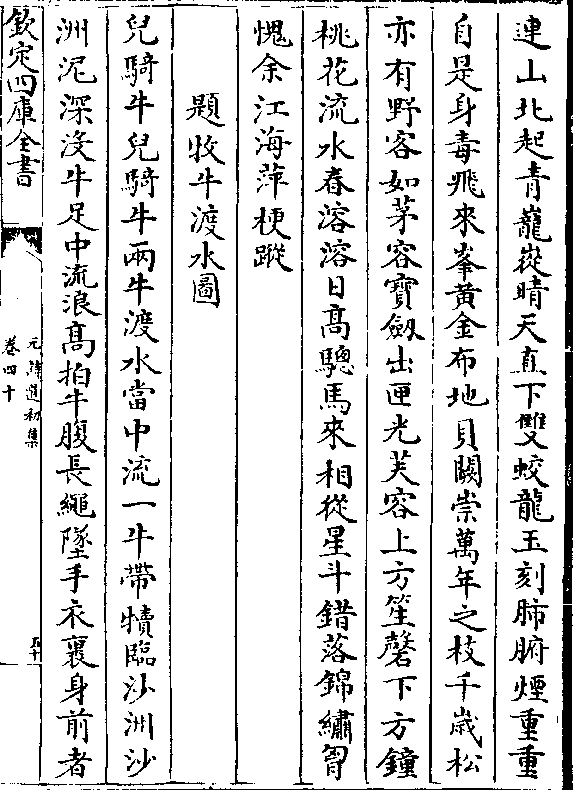 連山北起青巃嵸晴天直下雙蛟龍玉刻肺腑煙重重
自是身毒飛來峯黄金布地貝闕崇萬年之枝千嵗松
亦有野客如茅容寶劍出匣光芙容上方笙磬下方鐘
桃花流水春溶溶日髙驄馬來相從星斗錯落錦繡胷
愧余江海萍梗蹤
題牧牛渡水圖
兒騎牛兒騎牛兩牛渡水當中流一牛帶犢臨沙洲沙
洲泥深沒牛足中流浪髙拍牛腹長繩墜手衣裹身前者
欽定四庫全書
元詩選初集
卷四十